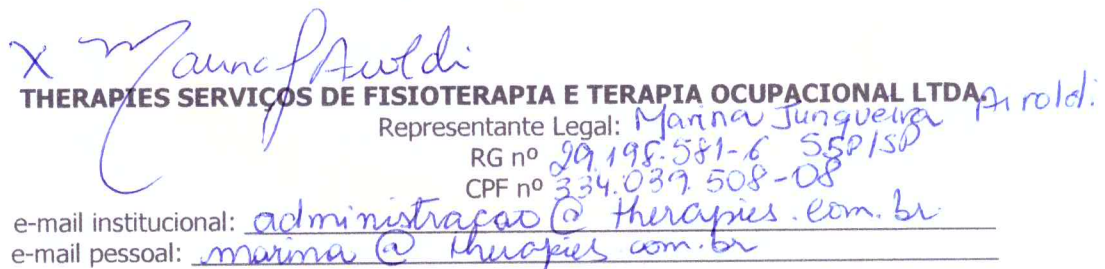 X Marina J Airoldi
THERAPIES SERVIÇOS DE FISIOTERAPIA E TERAPIA OCUPACIONAL LTDA.
Representante Legal: Marina Junqueira Airoldi
RG nº 29.198.581-6 SSP/SP
CPF nº 334.039.508-08
e-mail institucional: administraçao@therapies.com.br
e-mail pessoal: marina@therapies.com.br